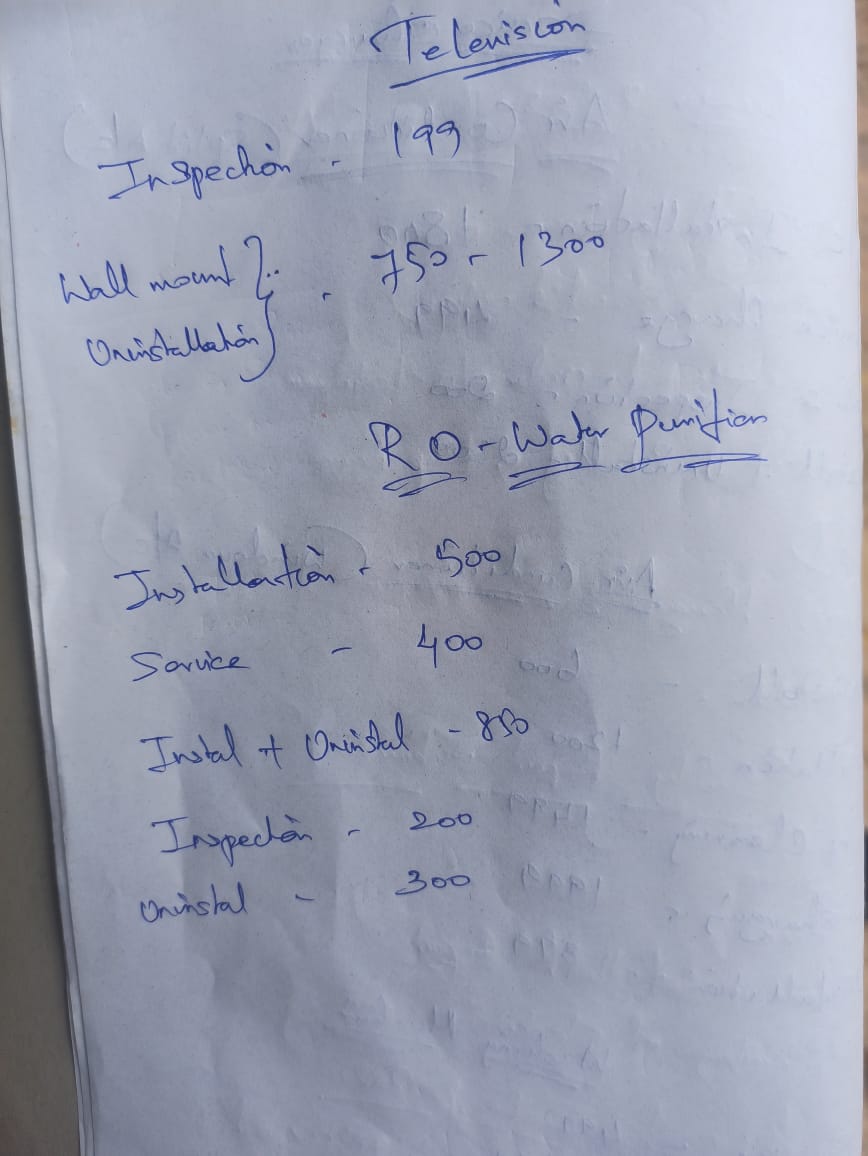 Television
Inspection - 199
Wall mount }
Uninstallation } - 750 - 1300
RO - Water Purifier
Installation - 500
Service - 400
Instal + Uninstal - 850
Inspection - 200
Uninstal - 300